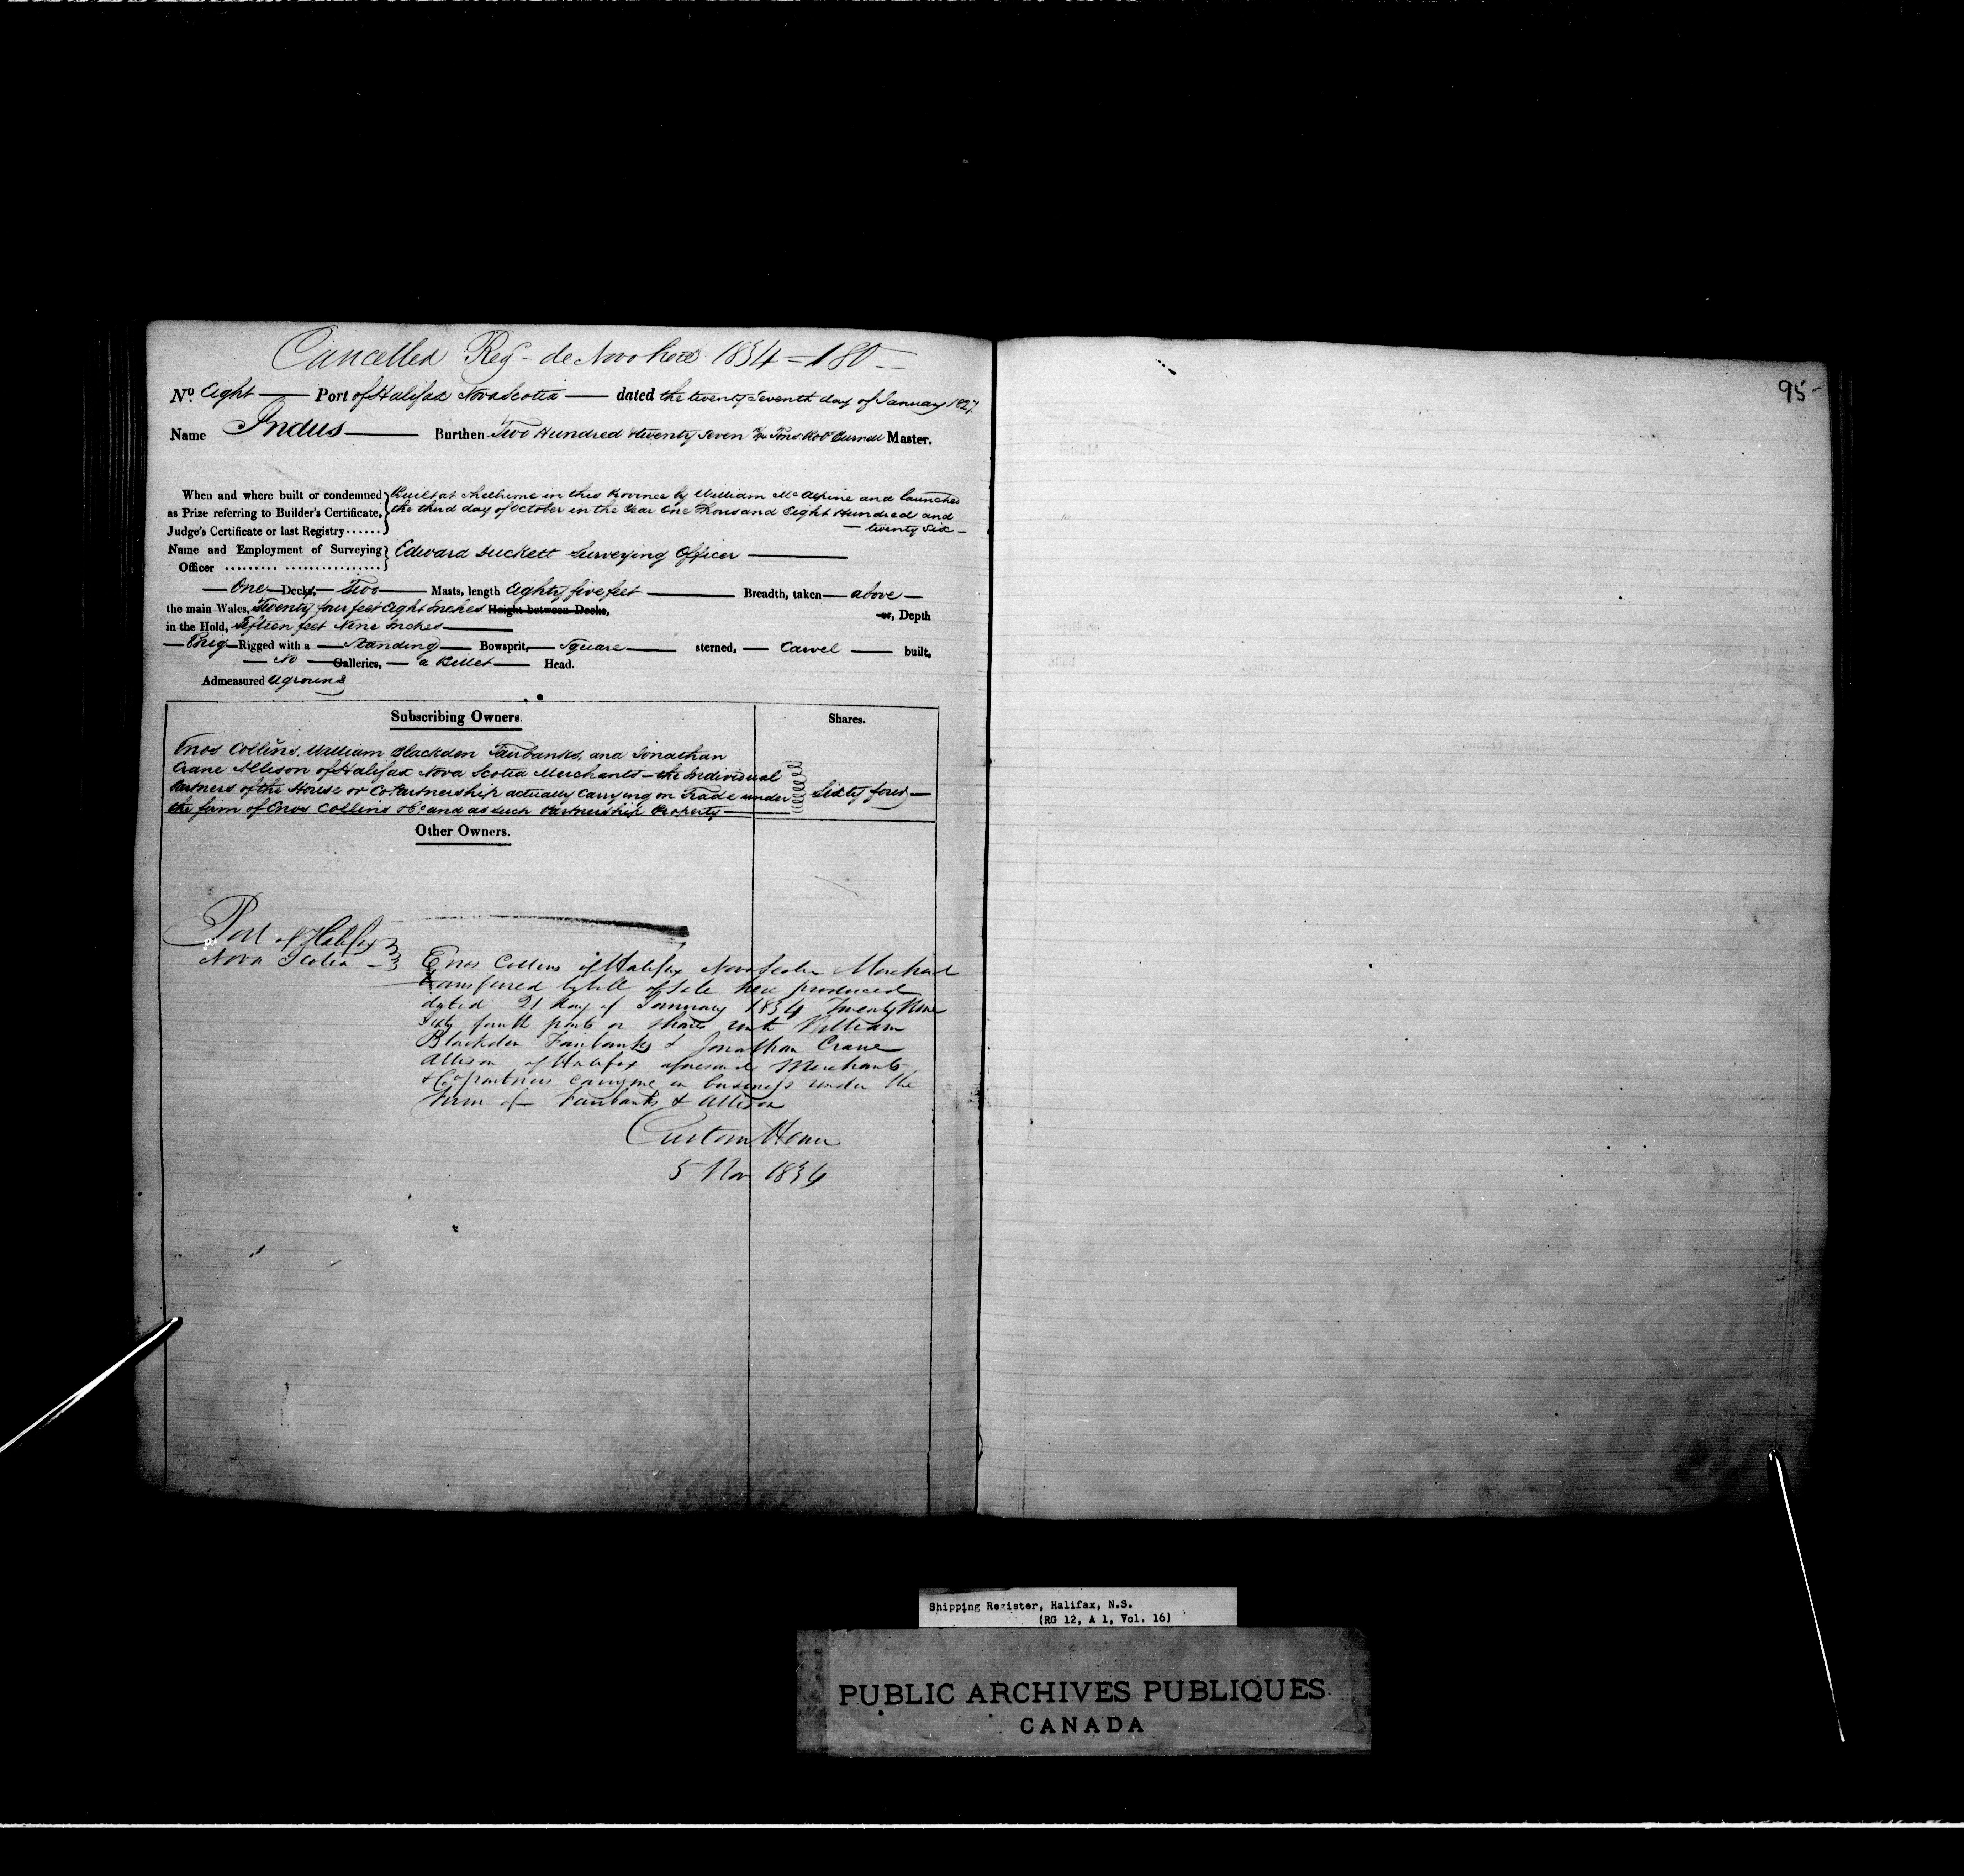 Cancelled Reg - de Novo here 1834 = 180
95
No. Eight Port of Halifax Nova Scotia dated the twenty Seventh day of January 1827
Name Indus Burthen Two Hundred & twenty Seven Tons. Master.
When and where built or condemned Built at Shelburne in this Province by William McAlpine and launched
as Prize referring to Builder's Certificate, the third day of October in the Year One Thousand Eight Hundred and
Judge's Certificate or last Registry...... twenty Six
Name and Employment of Surveying Edward Duckett Surveying Officer
Officer
One Decks, Two Masts, length Eighty five feet Breadth, taken above
the main Wales, Twenty four feet Eight Inches Height between Decks, or, Depth
in the Hold, Fifteen feet Nine Inches
Brig Rigged with a Standing Bowsprit, Square sterned, Carvel built,
No Galleries, a Billet Head.
Admeasured Aground
Subscribing Owners. Shares.
Enos Collins, William Blackden Fairbanks, and Jonathan
Crane Allison of Halifax Nova Scotia Merchants - the Individual
Partners of the House or CoPartnership actually carrying on Trade under Sixty four
the firm of Enos Collins & Co: and as such Partnership Property
Other Owners.
Port of Halifax
Nova Scotia
Enos Collins of Halifax Nova Scotia Merchant
transferred by bill of sale here produced
dated 21 day of January 1834 Twenty Nine
Sixty fourth parts or shares unto William
Blackden Fairbanks & Jonathan Crane
Allison of Halifax aforesaid Merchants
& Copartners carrying on business under the
Firm of Fairbanks & Allison
Custom House
5 Nov 1834
Shipping Register, Halifax, N.S.
(RG 12, A 1, Vol. 16)
PUBLIC ARCHIVES PUBLIQUES
CANADA